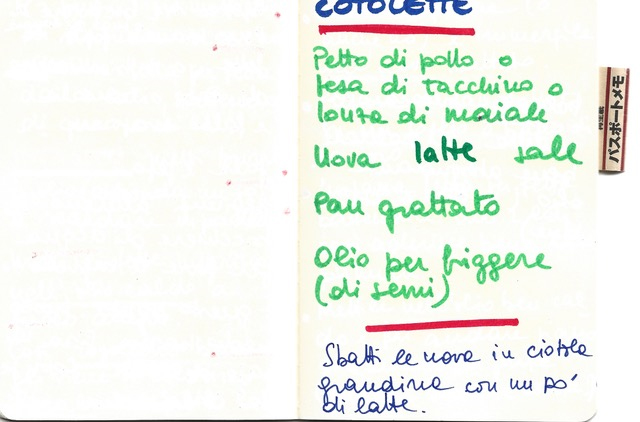 COTOLETTE
Petto di pollo o
fesa di tacchino o
lonza di maiale
Uova latte sale
Pan grattato
Olio per friggere
(di semi)
Sbatti le uova in ciotola
grandina con un po'
di latte.
パスポートメモ